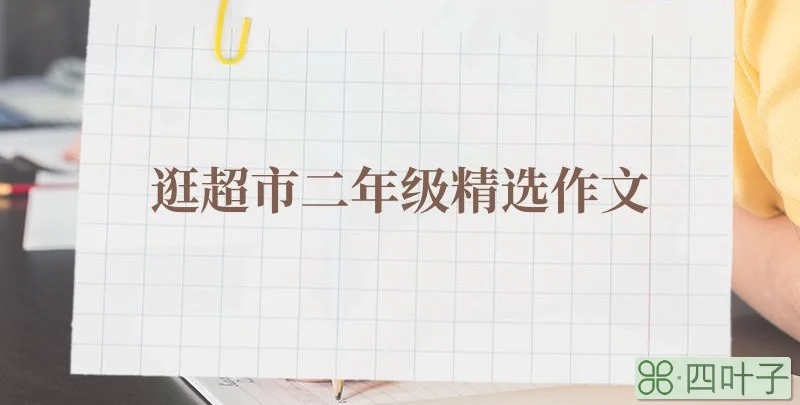 逛超市二年级精选作文
四叶子